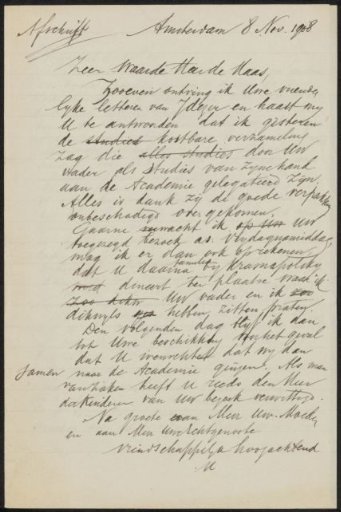 Afschrift Amsterdam 8 Nov. 1908
Zeer Waarde Heer de Haas,
Zooeven ontving ik Uwe vriende
lyke letteren van Idezer en haast my
U te antwoorden dat ik gisteren
de studies kostbare verzameling
zag die alle studies door Uw
vader als studies van zyne hand
aan de Academie gelegateerd zyn.
Alles is dank zy de goede verpakking
onbeschadigd overgekomen.
Gaarne wacht ik op Uw
toegezegd bezoek a.s. Vrydagnamiddag,
mag ik er dan ook op rekenen
dat U daarna familie by Krasnapolsky
dineert ter plaatse waar ik
Uw vader en ik zoo
dikwyls hebben zitten praten.
Den volgenden dag blyf ik dan
tot Uwe beschikking voor het geval
dat U wenscht dat wy dan
samen naar de Academie gingen. Als man
van zaken heeft U reeds den Heer
der Kinderen van Uw bezoek verwittigd.
Na groete aan Mevr. Uw Moeder
en aan Uwe Echtgenoote
vriendschappelyk hoogachtend
M